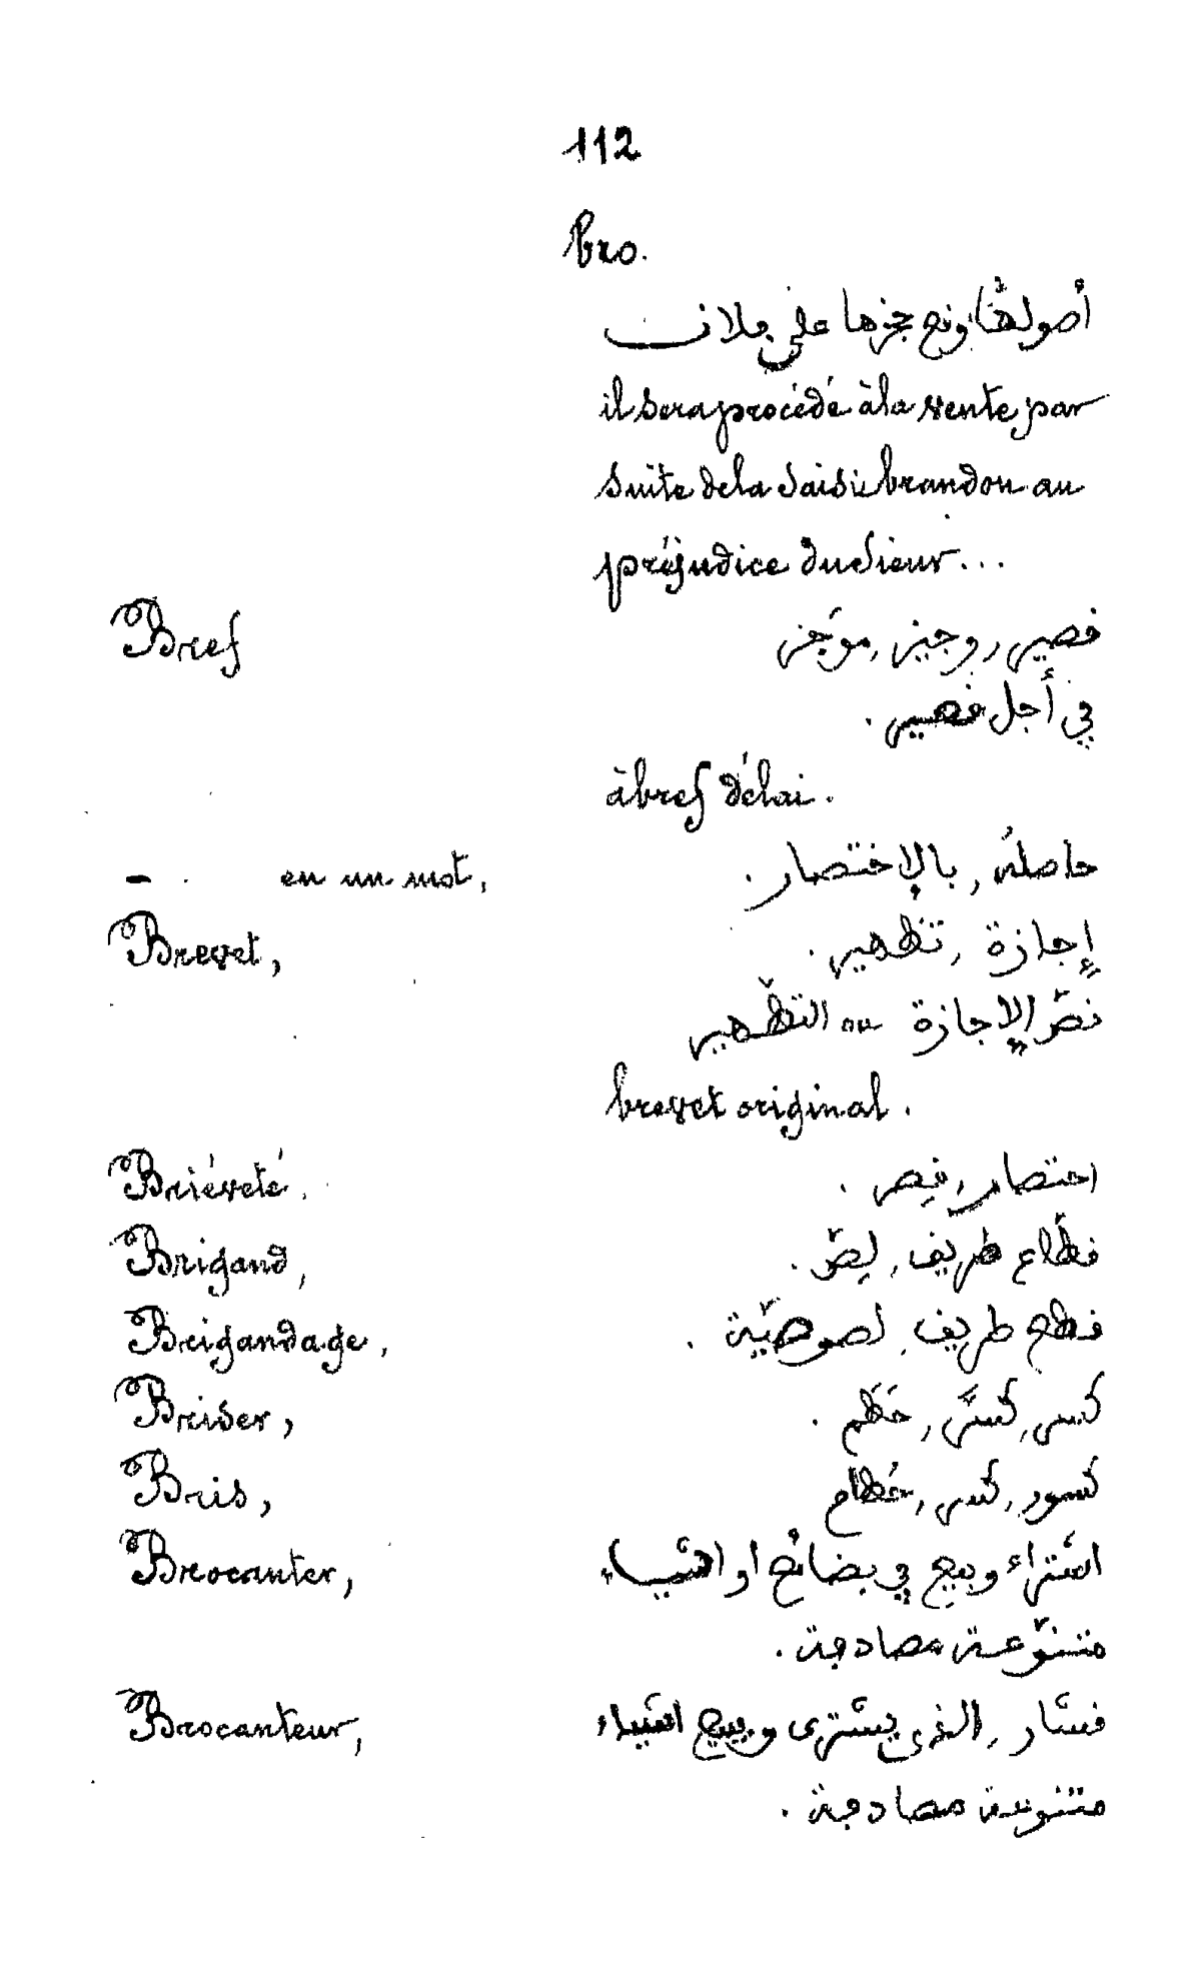 112
bro.
أصولها وقع حجزها على فلان
il sera procédé à la vente par
suite de la saisie brandon au
préjudice du sieur...
Bref قصير, وجيز, موَجز
في أجل قصير.
à bref délai.
- en un mot, حاصلُه, بالإختصار.
Brevet, إجازة, تظهير.
نصّ الإجازة ou التظهير
brevet original.
Briéveté. اختصار, قِصر.
Brigand, قطّاع طريق, لِصّ.
Brigandage, قطع طريق, لصوصيّة.
Briser, كسر, كسَّر, حَطَم.
Bris, كسور, كسر, حُطام
Brocanter, اشتراء وبيع في بضائع او اشياء
متنوّعة مصادفة.
Brocanteur, قشّار, الذى يشترى ويبيع اشياء
متنوعة مصادفة.